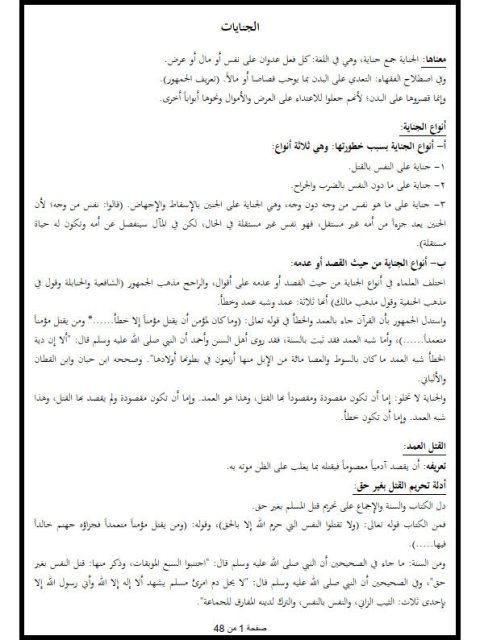 الجنايات
معناها: الجناية جمع جناية، وهي في اللغة: كل فعل عدوان على نفس أو مال أو عرض.
وفي اصطلاح الفقهاء: التعدي على البدن بما يوجب قصاصا أو مالاً. (تعريف الجمهور).
وإنما قصروها على البدن؛ لأنهم جعلوا للاعتداء على العرض والأموال ونحوها أبواباً أخرى.
أنواع الجناية:
أ- أنواع الجناية بسبب خطورتها: وهي ثلاثة أنواع:
١- جناية على النفس بالقتل.
٢- جناية على ما دون النفس بالضرب والجراح.
٣- جناية على ما هو نفس من وجه دون وجه، وهي الجناية على الجنين بالإسقاط والإجهاض. (قالوا: نفس من وجه؛ لأن
الجنين يعد جزءاً من أمه غير مستقل، فهو نفس غير مستقلة في الحال، لكن في المآل سينفصل عن أمه وتكون له حياة
مستقلة).
ب- أنواع الجناية من حيث القصد أو عدمه:
اختلف العلماء في أنواع الجناية من حيث القصد أو عدمه على أقوال، والراجح مذهب الجمهور (الشافعية والحنابلة وقول في
مذهب الحنفية وقول مذهب مالك) أنها ثلاثة: عمد وشبه عمد وخطأ.
واستدل الجمهور بأن القرآن جاء بالعمد والخطأ في قوله تعالى: (وما كان لمؤمن أن يقتل مؤمناً إلا خطأ......* ومن يقتل مؤمناً
متعمداً......)، وأما شبه العمد فقد ثبت بالسنة، فقد روى أهل السنن وأحمد أن النبي صلى الله عليه وسلم قال: "ألا إن دية
الخطأ شبه العمد ما كان بالسوط والعصا مائة من الإبل منها أربعون في بطونها أولادها". وصححه ابن حبان وابن القطان
والألباني.
والجناية لا تخلو: إما أن تكون مقصودة ومقصوداً بها القتل، وهذا هو العمد. وإما أن تكون مقصودة ولم يقصد بها القتل، وهذا
شبه العمد. وإما أن تكون خطأ.
القتل العمد:
تعريفه: أن يقصد آدمياً معصوماً فيقتله بما يغلب على الظن موته به.
أدلة تحريم القتل بغير حق:
دل الكتاب والسنة والإجماع على تحريم قتل المسلم بغير حق.
فمن الكتاب قوله تعالى: (ولا تقتلوا النفس التي حرم الله إلا بالحق)، وقوله: (ومن يقتل مؤمناً متعمداً فجزاؤه جهنم خالداً
فيها.....).
ومن السنة: ما جاء في الصحيحين أن النبي صلى الله عليه وسلم قال: "اجتنبوا السبع الموبقات، وذكر منها: قتل النفس بغير
حق"، وفي الصحيحين أن النبي صلى الله عليه وسلم قال: "لا يحل دم امرئ مسلم يشهد ألا إله إلا الله وأني رسول الله إلا
بإحدى ثلاث: الثيب الزاني، والنفس بالنفس، والترك لدينه المفارق للجماعة".
صفحة 1 من 48